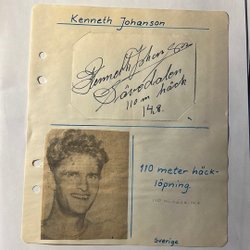 Kenneth Johanson
Kenneth Johansson
110 m häck
14,8.
110 meter häck-
löpning.
Sverige